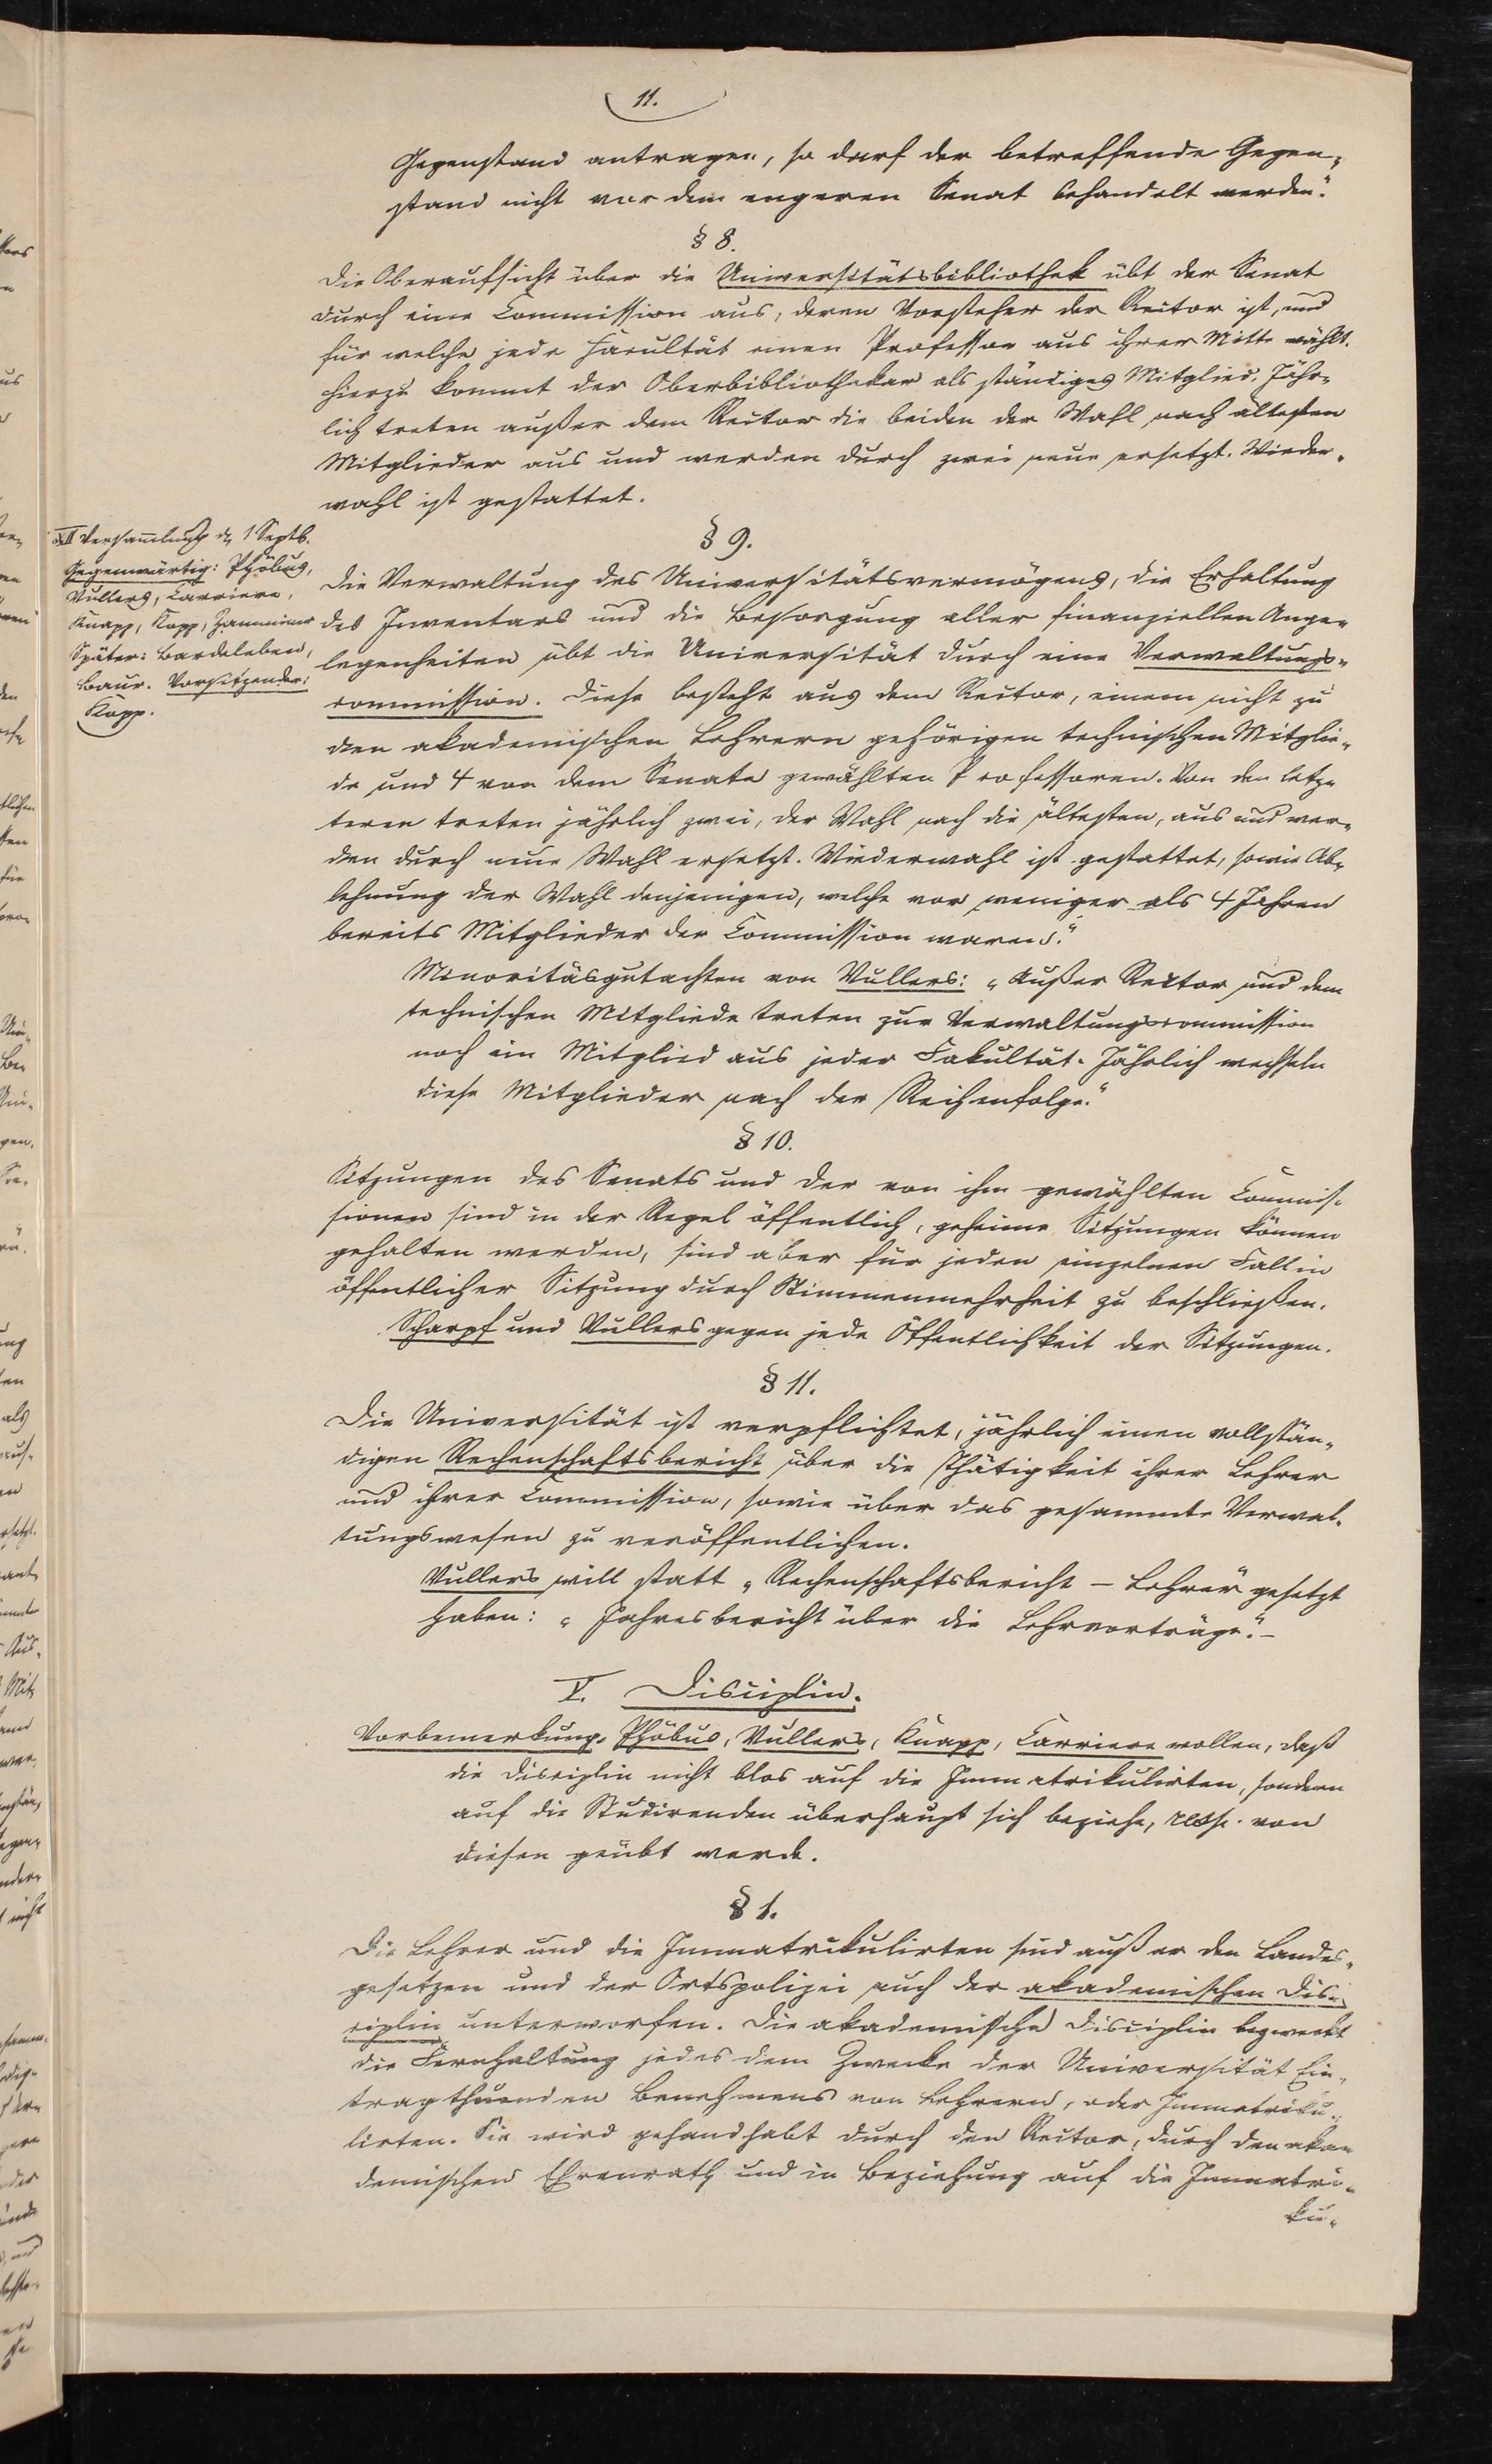 11.
Gegenstand antragen, so darf der betreffende Gegen-
stand nicht vor dem engeren Senat behandelt werden."
§ 8.
Die Oberaufsicht über die Universitätsbibliothek übt der Senat
durch eine Commission aus, deren Vorsteher der Rector ist, und
für welche jede Facultät einen Professor aus ihrer Mitte wählt.
Hierzu kommt der Oberbibliothekar als ständiges Mitglied. Jähr-
lich treten außer dem Rector die beiden der Wahl nach ältesten
Mitglieder aus und werden durch zwei neue ersetzt. Wieder-
wahl ist gestattet.
XII Versammlung d. 1 Septb.
Gegenwärtig: Phöbus,
Vullers, Carriere,
Knapp, Kopp, Zamminer
Später: Bardeleben,
Baur. Vorsitzender:
Kopp.
§ 9.
Die Verwaltung des Universitätsvermögens, die Erhaltung
des Inventars und die Besorgung aller finanziellen Ange-
legenheiten übt die Universität durch eine Verwaltungs-
commission. Diese besteht aus dem Rector, einem nicht zu
den akademischen Lehrern gehörigen technischen Mitglie-
de und 4 von dem Senate gewählten Professoren. Von den letz-
teren treten jährlich zwei, der Wahl nach die ältesten, aus und wer-
den durch neue Wahl ersetzt. Wiederwahl ist gestattet, sowie Ab-
lehnung der Wahl denjenigen, welche vor weniger als 4 Jahren
bereits Mitglieder der Commission waren."
Minoritäsgutachten von Vullers: „Außer Rector und dem
technischen Mitgliede treten zur Verwaltungscommission
noch ein Mitglied aus jeder Fakultät. Jährlich wechseln
diese Mitglieder nach der Reihenfolge."
§ 10.
Sitzungen des Senats und der von ihm gewählten Commis-
sionen sind in der Regel öffentlich, geheime Sitzungen können
gehalten werden, sind aber für jeden einzelnen Fall in
öffentlicher Sitzung durch Stimmenmehrheit zu beschließen.
Scharpf und Vullers gegen jede Öffentlichkeit der Sitzungen.
§ 11.
Die Universität ist verpflichtet, jährlich einen vollstän-
digen Rechenschaftsbericht über die Thätigkeit ihrer Lehrer
und ihrer Commission, sowie über das gesammte Verwal-
tungswesen zu veröffentlichen.
Vullers will statt „Rechenschaftsbericht – Lehrer" gesetzt
haben: „Jahresbericht über die Lehrvorträge." –
V. Disciplin.
Vorbemerkung. Phöbus, Vullers, Knapp, Carriere wollen, daß
die Disciplin nicht blos auf die Immatrikulirten, sondern
auf die Studirenden überhaupt sich beziehe, resp. von
diesen geübt werde.
§ 1.
Die Lehrer und die Immatrikulirten sind außer den Landes-
gesetzen und der Ortspolizei auch der akademischen Dis-
ciplin unterworfen. Die akademische Disciplin bezweckt
die Fernhaltung jedes dem Zwecke der Universität Ein-
trag thuenden Benehmens von Lehrern, oder Immatriku-
lirten. Sie wird gehandhabt durch den Rector, durch den aka-
demischen Ehrenrath und in Beziehung auf die Immatri-
ku-